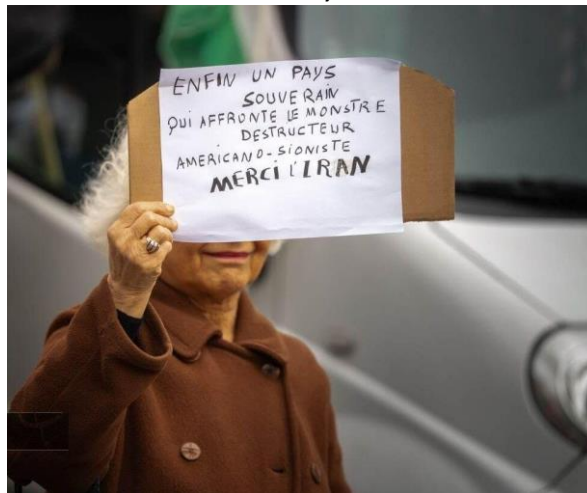 ENFIN UN PAYS
SOUVERAIN
QUI AFFRONTE LE MONSTRE
DESTRUCTEUR
AMERICANO-SIONISTE
MERCI L'IRAN